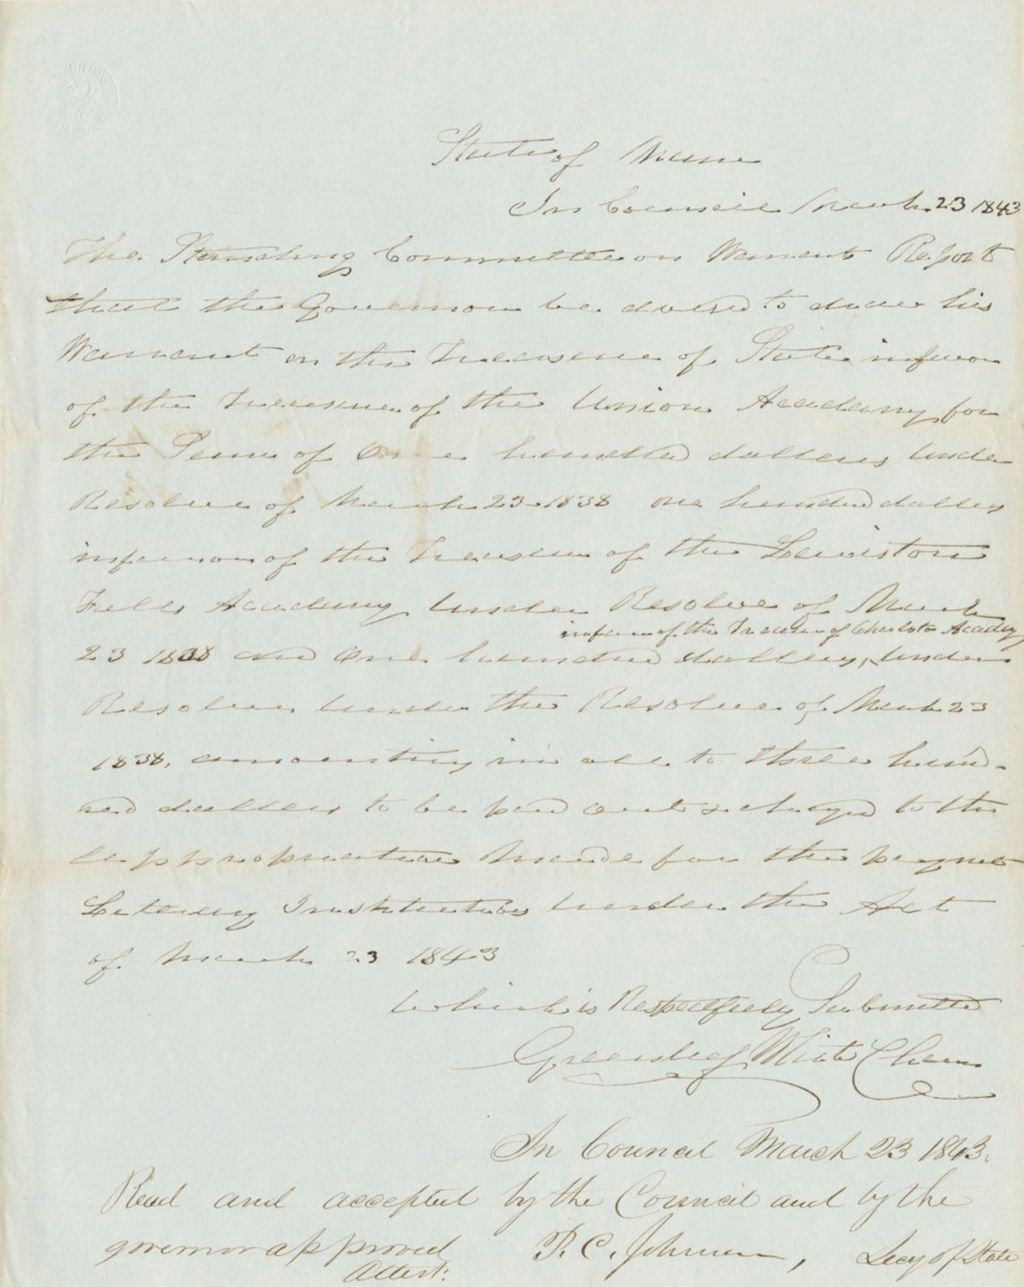 State of Maine
In Council March 23 1843
The Standing Committee on Warrants Report
that the Governor be advised to draw his
Warrant on the Treasurer of State in favor
of the Treasurer of the Union Academy for
the Sum of One hundred dollars under
Resolve of March 23 1838 one hundred dollars
in favor of the Treasurer of the Lewiston
Falls Academy under Resolve of March
in favor of the Treasurer of Charleston Academy
23 1838 and One hundred dollars, under
Resolve under the Resolve of March 23
1838, amounting in all to three hund-
red dollars to be paid out & charged to the
appropriation made for the
Literary Institutions under the Act
of March 23 1843
Which is Respectfully Submitted
Greenleaf White Cham
In Council March 23 1843.
Read and accepted by the Council and by the
governor approved
Attest: P. C. Johnson, Secy of State